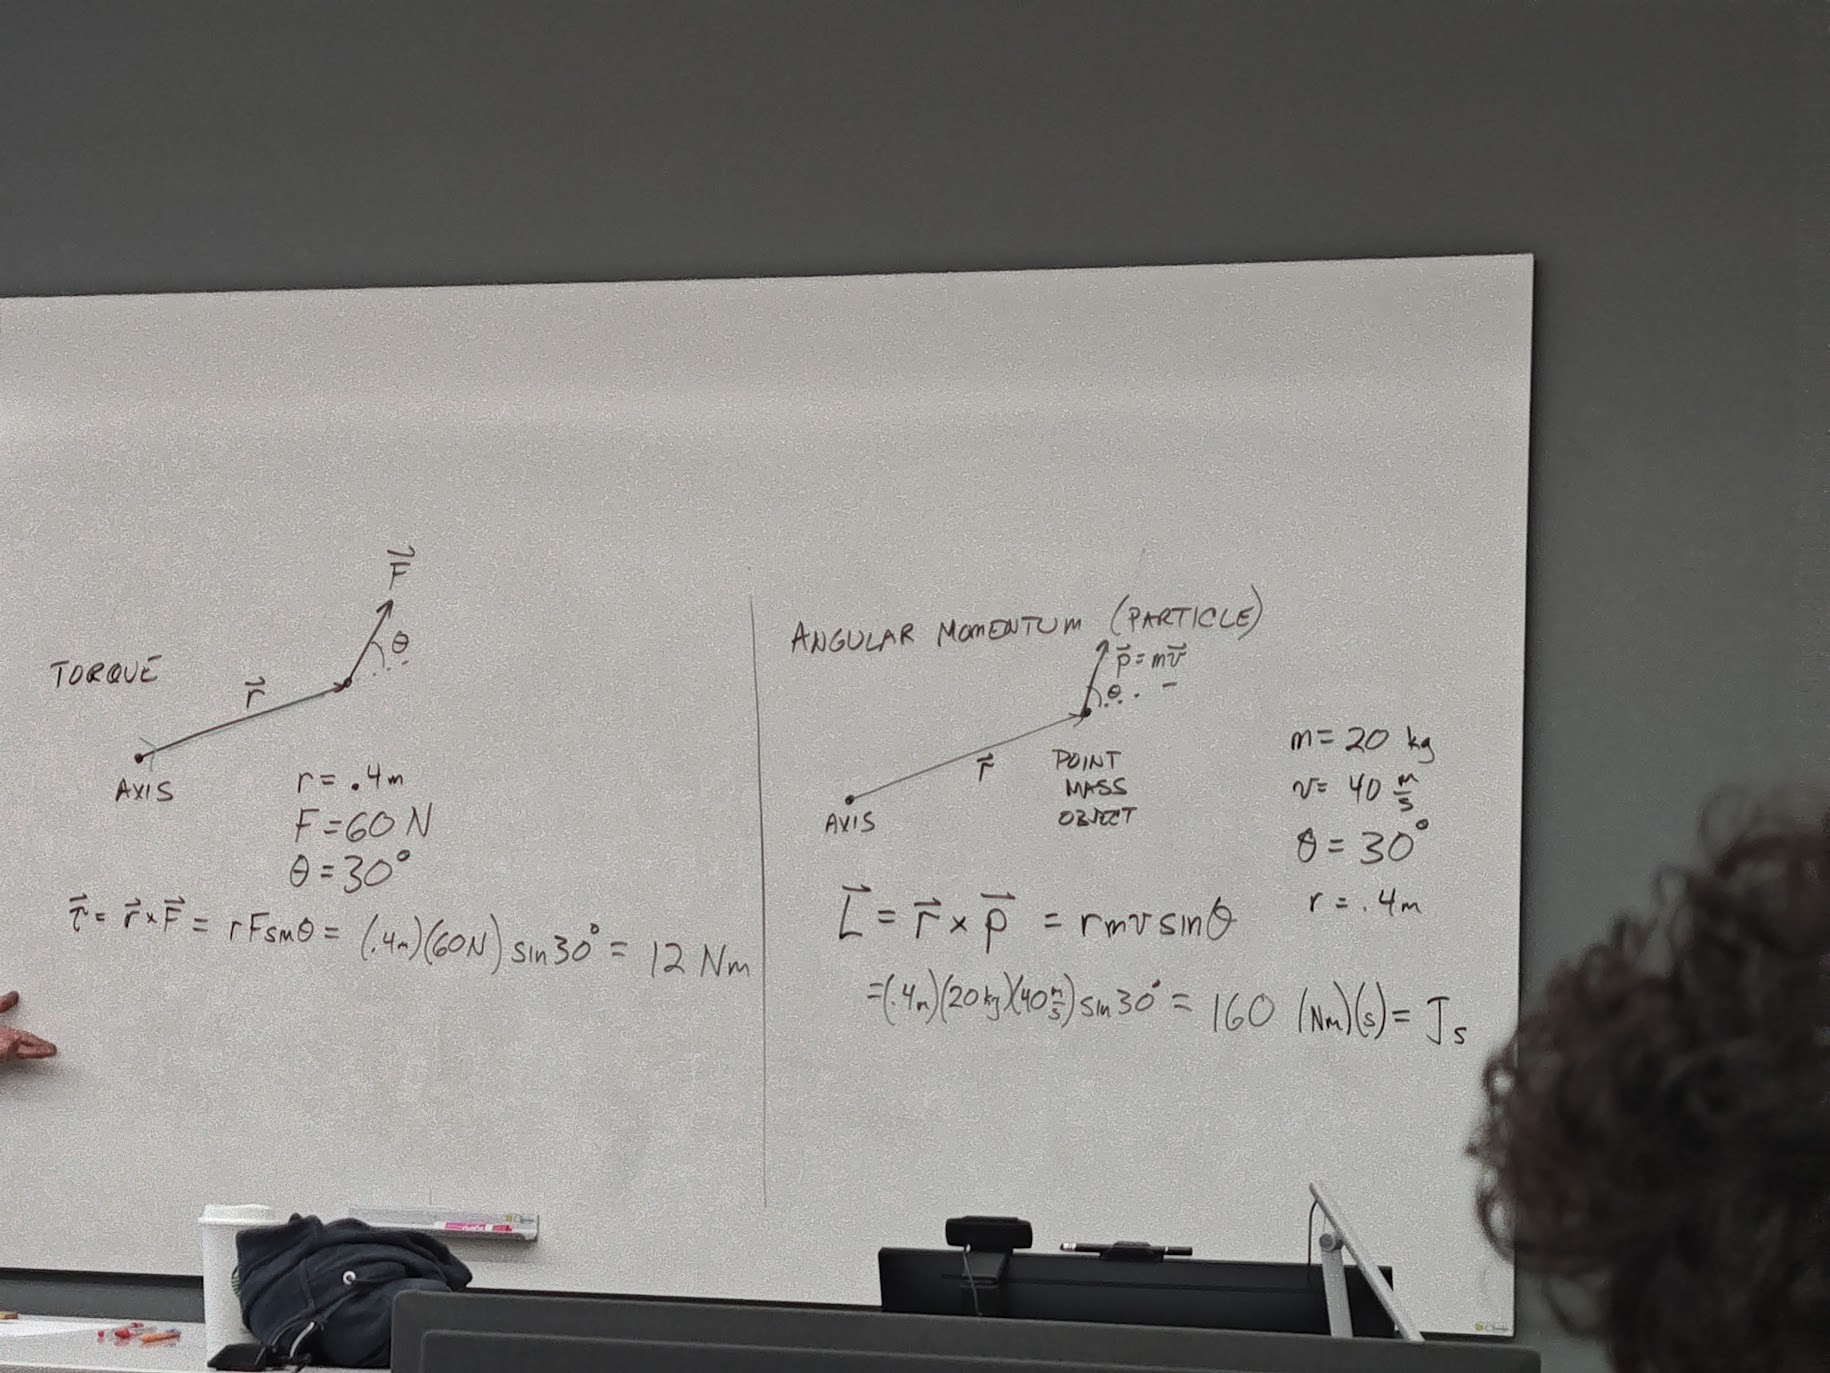 TORQUE
F⃗
θ
r⃗
AXIS
r = .4m
F = 60 N
θ = 30°
τ⃗ = r⃗ × F⃗ = rFsinθ = (.4m)(60N) sin30° = 12 Nm
ANGULAR MOMENTUM (PARTICLE)
p⃗ = mv⃗
θ
r⃗
AXIS
POINT
MASS
OBJECT
m = 20 kg
v = 40 m/s
θ = 30°
r = .4m
L⃗ = r⃗ × p⃗ = rmvsinθ
=(.4m)(20kg)(40 m/s) sin30° = 160 (Nm)(s) = Js